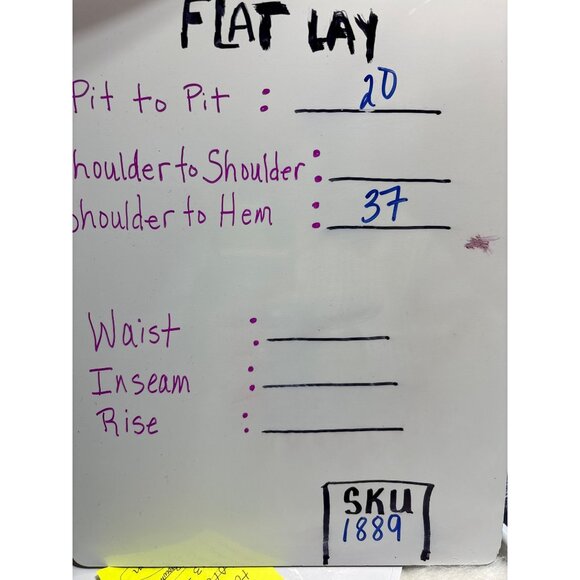 FLAT LAY
Pit to Pit : 20
houlder to Shoulder :
Shoulder to Hem : 37
Waist :
Inseam :
Rise :
SKU
1889